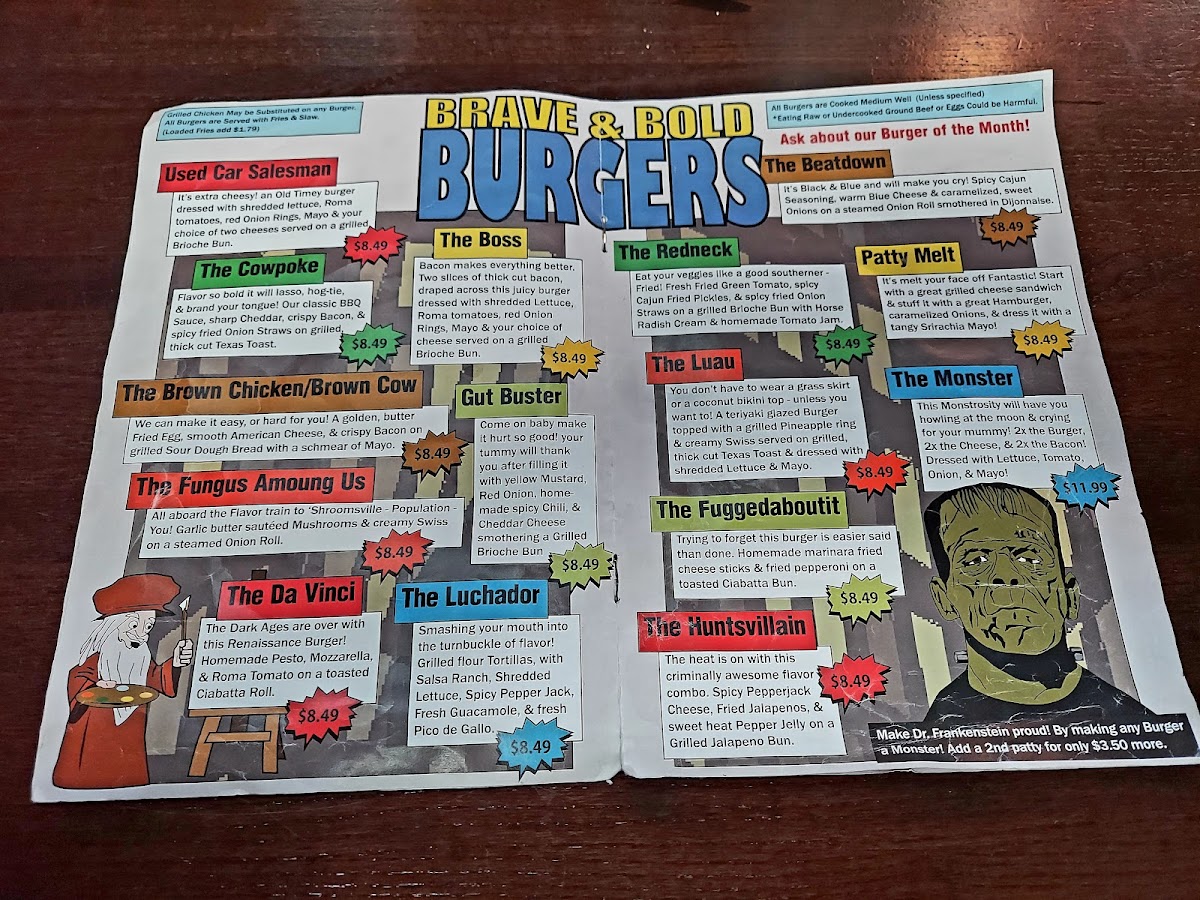 Grilled Chicken May be Substituted on any Burger.
All Burgers are Served with Fries & Slaw.
(Loaded Fries add $1.79)
BRAVE & BOLD
BURGERS
All Burgers are Cooked Medium Well (Unless specified)
*Eating Raw or Undercooked Ground Beef or Eggs Could be Harmful.
Ask about our Burger of the Month!
Used Car Salesman
It's extra cheesy! an Old Timey burger
dressed with shredded lettuce, Roma
tomatoes, red Onion Rings, Mayo & your
choice of two cheeses served on a grilled
Brioche Bun.
$8.49
The Cowpoke
Flavor so bold it will lasso, hog-tie,
& brand your tongue! Our classic BBQ
Sauce, sharp Cheddar, crispy Bacon, &
spicy fried Onion Straws on grilled,
thick cut Texas Toast.
$8.49
The Boss
Bacon makes everything better.
Two slices of thick cut bacon,
draped across this juicy burger
dressed with shredded Lettuce,
Roma tomatoes, red Onion
Rings, Mayo & your choice of
cheese served on a grilled
Brioche Bun.
$8.49
The Brown Chicken/Brown Cow
We can make it easy, or hard for you! A golden, butter
Fried Egg, smooth American Cheese, & crispy Bacon on
grilled Sour Dough Bread with a schmear of Mayo.
$8.49
Gut Buster
Come on baby make
it hurt so good! your
tummy will thank
you after filling it
with yellow Mustard,
Red Onion, home-
made spicy Chili, &
Cheddar Cheese
smothering a Grilled
Brioche Bun
$8.49
The Fungus Amoung Us
All aboard the Flavor train to 'Shroomsville - Population -
You! Garlic butter sautéed Mushrooms & creamy Swiss
on a steamed Onion Roll.
$8.49
The Da Vinci
The Dark Ages are over with
this Renaissance Burger!
Homemade Pesto, Mozzarella,
& Roma Tomato on a toasted
Ciabatta Roll.
$8.49
The Luchador
Smashing your mouth into
the turnbuckle of flavor!
Grilled flour Tortillas, with
Salsa Ranch, Shredded
Lettuce, Spicy Pepper Jack,
Fresh Guacamole, & fresh
Pico de Gallo.
$8.49
The Beatdown
It's Black & Blue and will make you cry! Spicy Cajun
Seasoning, warm Blue Cheese & caramelized, sweet
Onions on a steamed Onion Roll smothered in Dijonnaise.
$8.49
The Redneck
Eat your veggies like a good southerner -
Fried! Fresh Fried Green Tomato, spicy
Cajun Fried Pickles, & spicy fried Onion
Straws on a grilled Brioche Bun with Horse
Radish Cream & homemade Tomato Jam.
$8.49
Patty Melt
It's melt your face off Fantastic! Start
with a great grilled cheese sandwich
& stuff it with a great Hamburger,
caramelized Onions, & dress it with a
tangy Srirachia Mayo!
$8.49
The Luau
You don't have to wear a grass skirt
or a coconut bikini top - unless you
want to! A teriyaki glazed Burger
topped with a grilled Pineapple ring
& creamy Swiss served on grilled,
thick cut Texas Toast & dressed with
shredded Lettuce & Mayo.
$8.49
The Monster
This Monstrosity will have you
howling at the moon & crying
for your mummy! 2x the Burger,
2x the Cheese, & 2x the Bacon!
Dressed with Lettuce, Tomato,
Onion, & Mayo!
$11.99
The Fuggedaboutit
Trying to forget this burger is easier said
than done. Homemade marinara fried
cheese sticks & fried pepperoni on a
toasted Ciabatta Bun.
$8.49
The Huntsvillain
The heat is on with this
criminally awesome flavor
combo. Spicy Pepperjack
Cheese, Fried Jalapenos, &
sweet heat Pepper Jelly on a
Grilled Jalapeno Bun.
$8.49
Make Dr. Frankenstein proud! By making any Burger
a Monster! Add a 2nd patty for only $3.50 more.